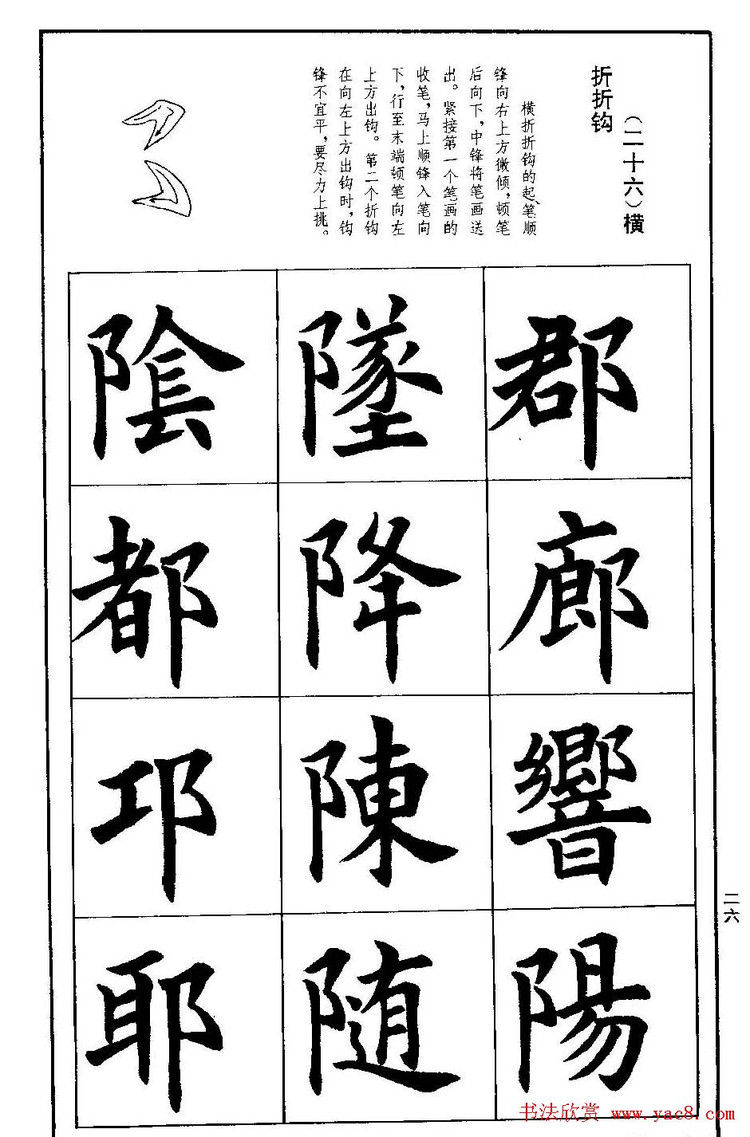 (二十六)横
折折钩
横折折钩的起笔顺
锋向右上方微倾,顿笔
后向下,中锋将笔画送
出。紧接第一个笔画的
收笔,马上顺锋入笔向
下,行至末端顿笔向左
上方出钩。第二个折钩
在向左上方出钩时,钩
锋不宜平,要尽力上挑。
郡廊響陽
墜降陳随
隂都邛耶
二六
书法欣赏 www.yac8.com